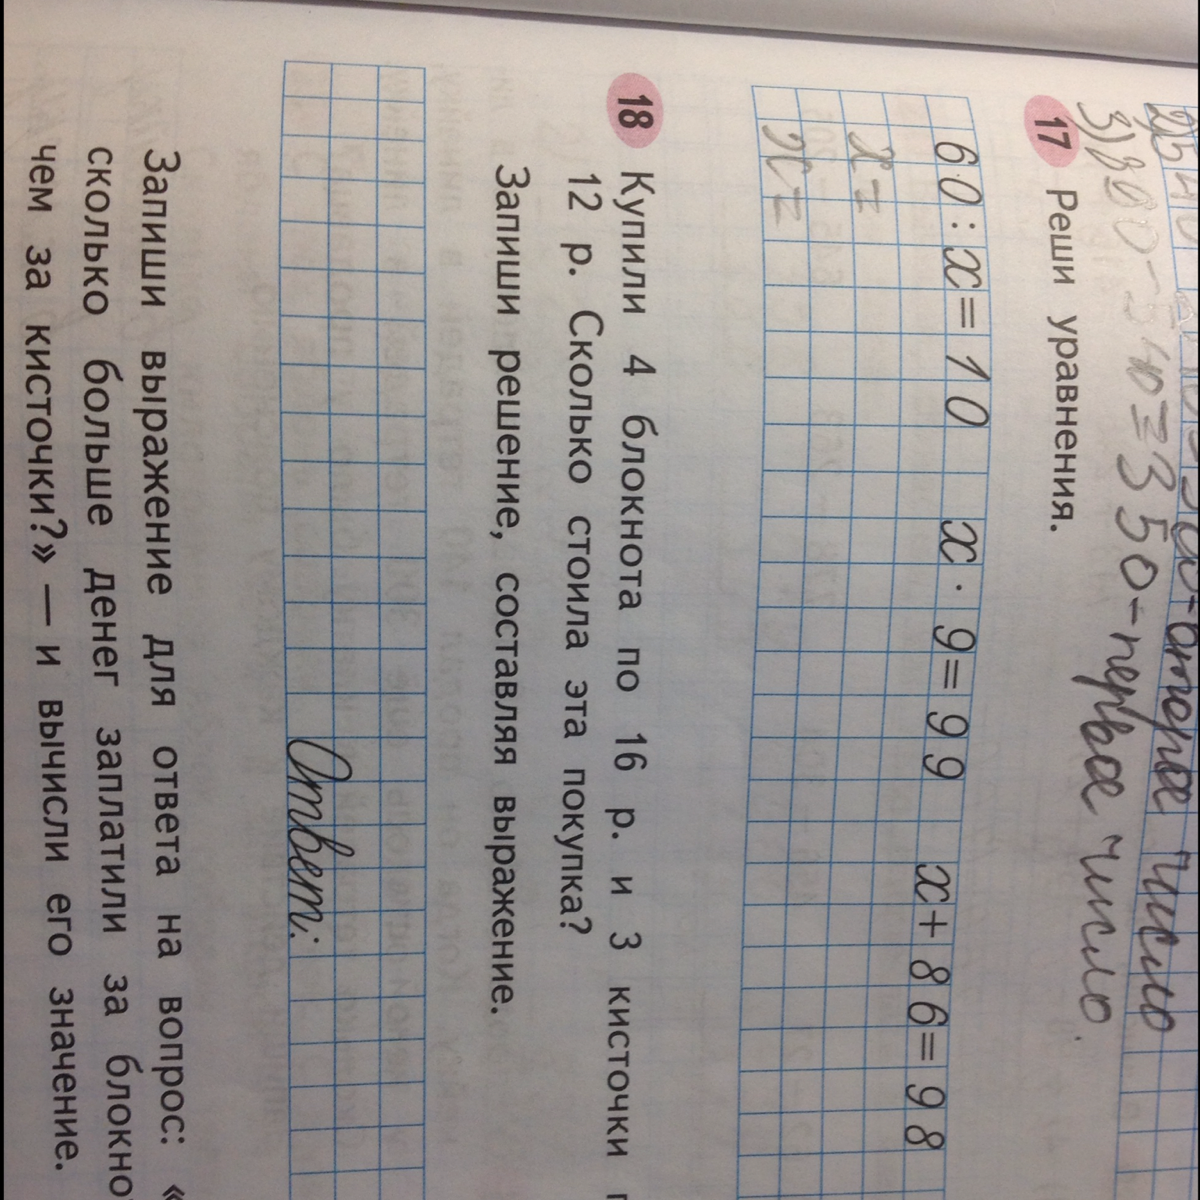 3) 890-540=350-первое число.
17 Реши уравнения.
60:x=10 x·9=99 x+86=98
x=
x=
18 Купили 4 блокнота по 16 р. и 3 кисточки
12 р. Сколько стоила эта покупка?
Запиши решение, составляя выражение.
Ответ:
Запиши выражение для ответа на вопрос: «
сколько больше денег заплатили за блокно
чем за кисточки?» — и вычисли его значение.